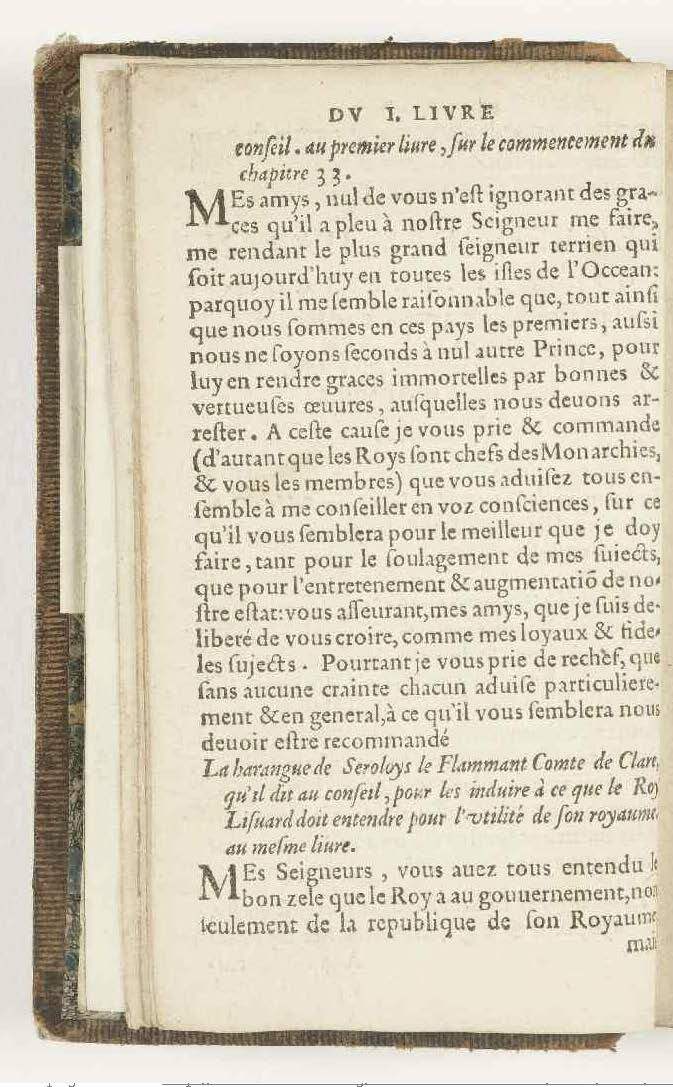 DV I. LIVRE
conſeil. au premier liure, ſur le commencement du
chapitre 33.
MEs amys, nul de vous n'eſt ignorant des gra-
ces qu'il a pleu à noſtre Seigneur me faire,
me rendant le plus grand ſeigneur terrien qui
ſoit aujourd'huy en toutes les iſles de l'Occean:
parquoy il me ſemble raiſonnable que, tout ainſi
que nous ſommes en ces pays les premiers, auſsi
nous ne ſoyons ſeconds à nul autre Prince, pour
luy en rendre graces immortelles par bonnes &
vertueuſes œuures, auſquelles nous deuons ar-
reſter. A ceſte cauſe je vous prie & commande
(d'autant que les Roys ſont chefs des Monarchies,
& vous les membres) que vous aduiſez tous en-
ſemble à me conſeiller en voz conſciences, ſur ce
qu'il vous ſemblera pour le meilleur que je doy
faire, tant pour le ſoulagement de mes ſuiects,
que pour l'entretenement & augmentatiõ de no-
ſtre eſtat: vous aſſeurant, mes amys, que je ſuis de-
liberé de vous croire, comme mes loyaux & fide-
les ſujects. Pourtant je vous prie de rechef, que
ſans aucune crainte chacun aduiſe particuliere-
ment & en general, à ce qu'il vous ſemblera nous
deuoir eſtre recommandé
La harangue de Seroloys le Flammant Comte de Clare,
qu'il dit au conſeil, pour les induire à ce que le Roy
Liſuard doit entendre pour l'vtilité de ſon royaume.
au meſme liure.
MEs Seigneurs, vous auez tous entendu le
bon zele que le Roy a au gouuernement, non
ſeulement de la republique de ſon Royaume
mais